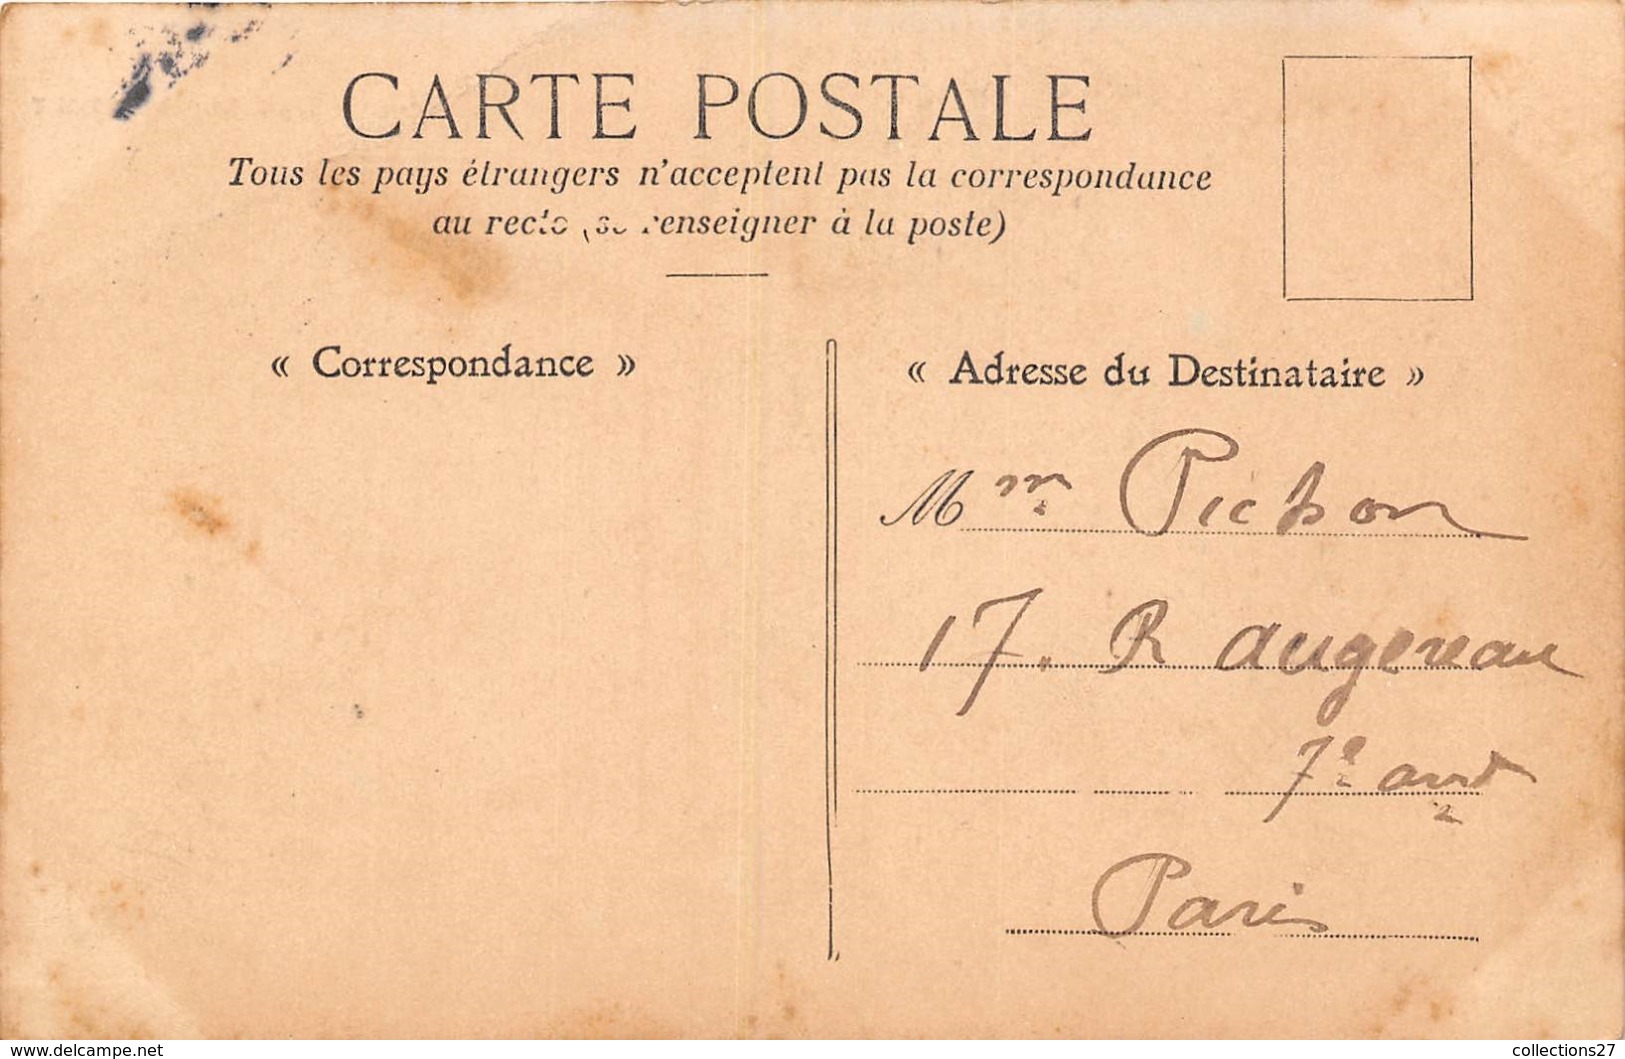 CARTE POSTALE
Tous les pays étrangers n'acceptent pas la correspondance
au recto (se renseigner à la poste)
« Correspondance »
« Adresse du Destinataire »
Mm Pichon
17. R augereau
7e arrdt
Paris
www.delcampe.net
collections27